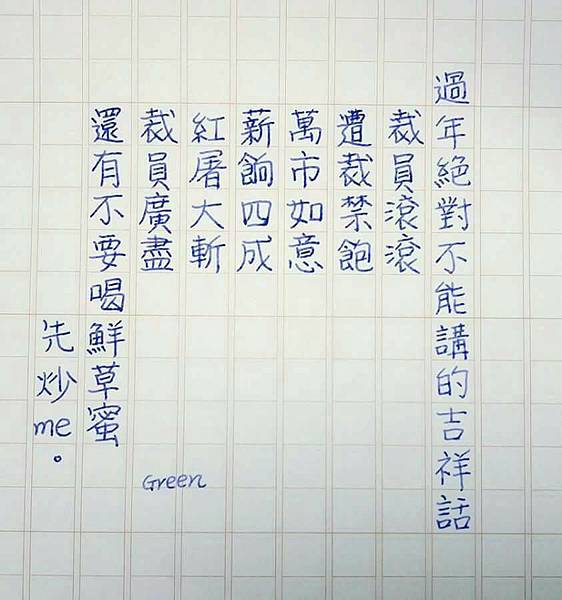 過年絕對不能講的吉祥話
裁員滾滾
遭裁禁飽
萬市如意
薪餉四成
紅屠大斬
裁員廣盡
還有不要喝鮮草蜜
先炒me。
Green